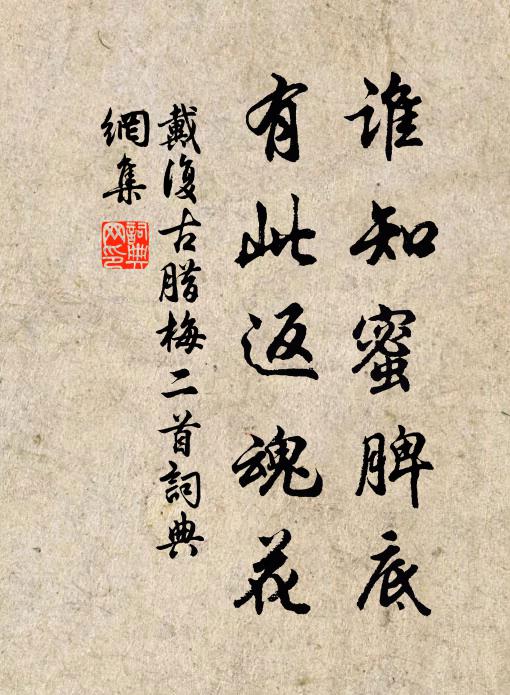 谁知蜜脾底
有此返魂花
戴復古腊梅二首詞典
網集
詞典
网印